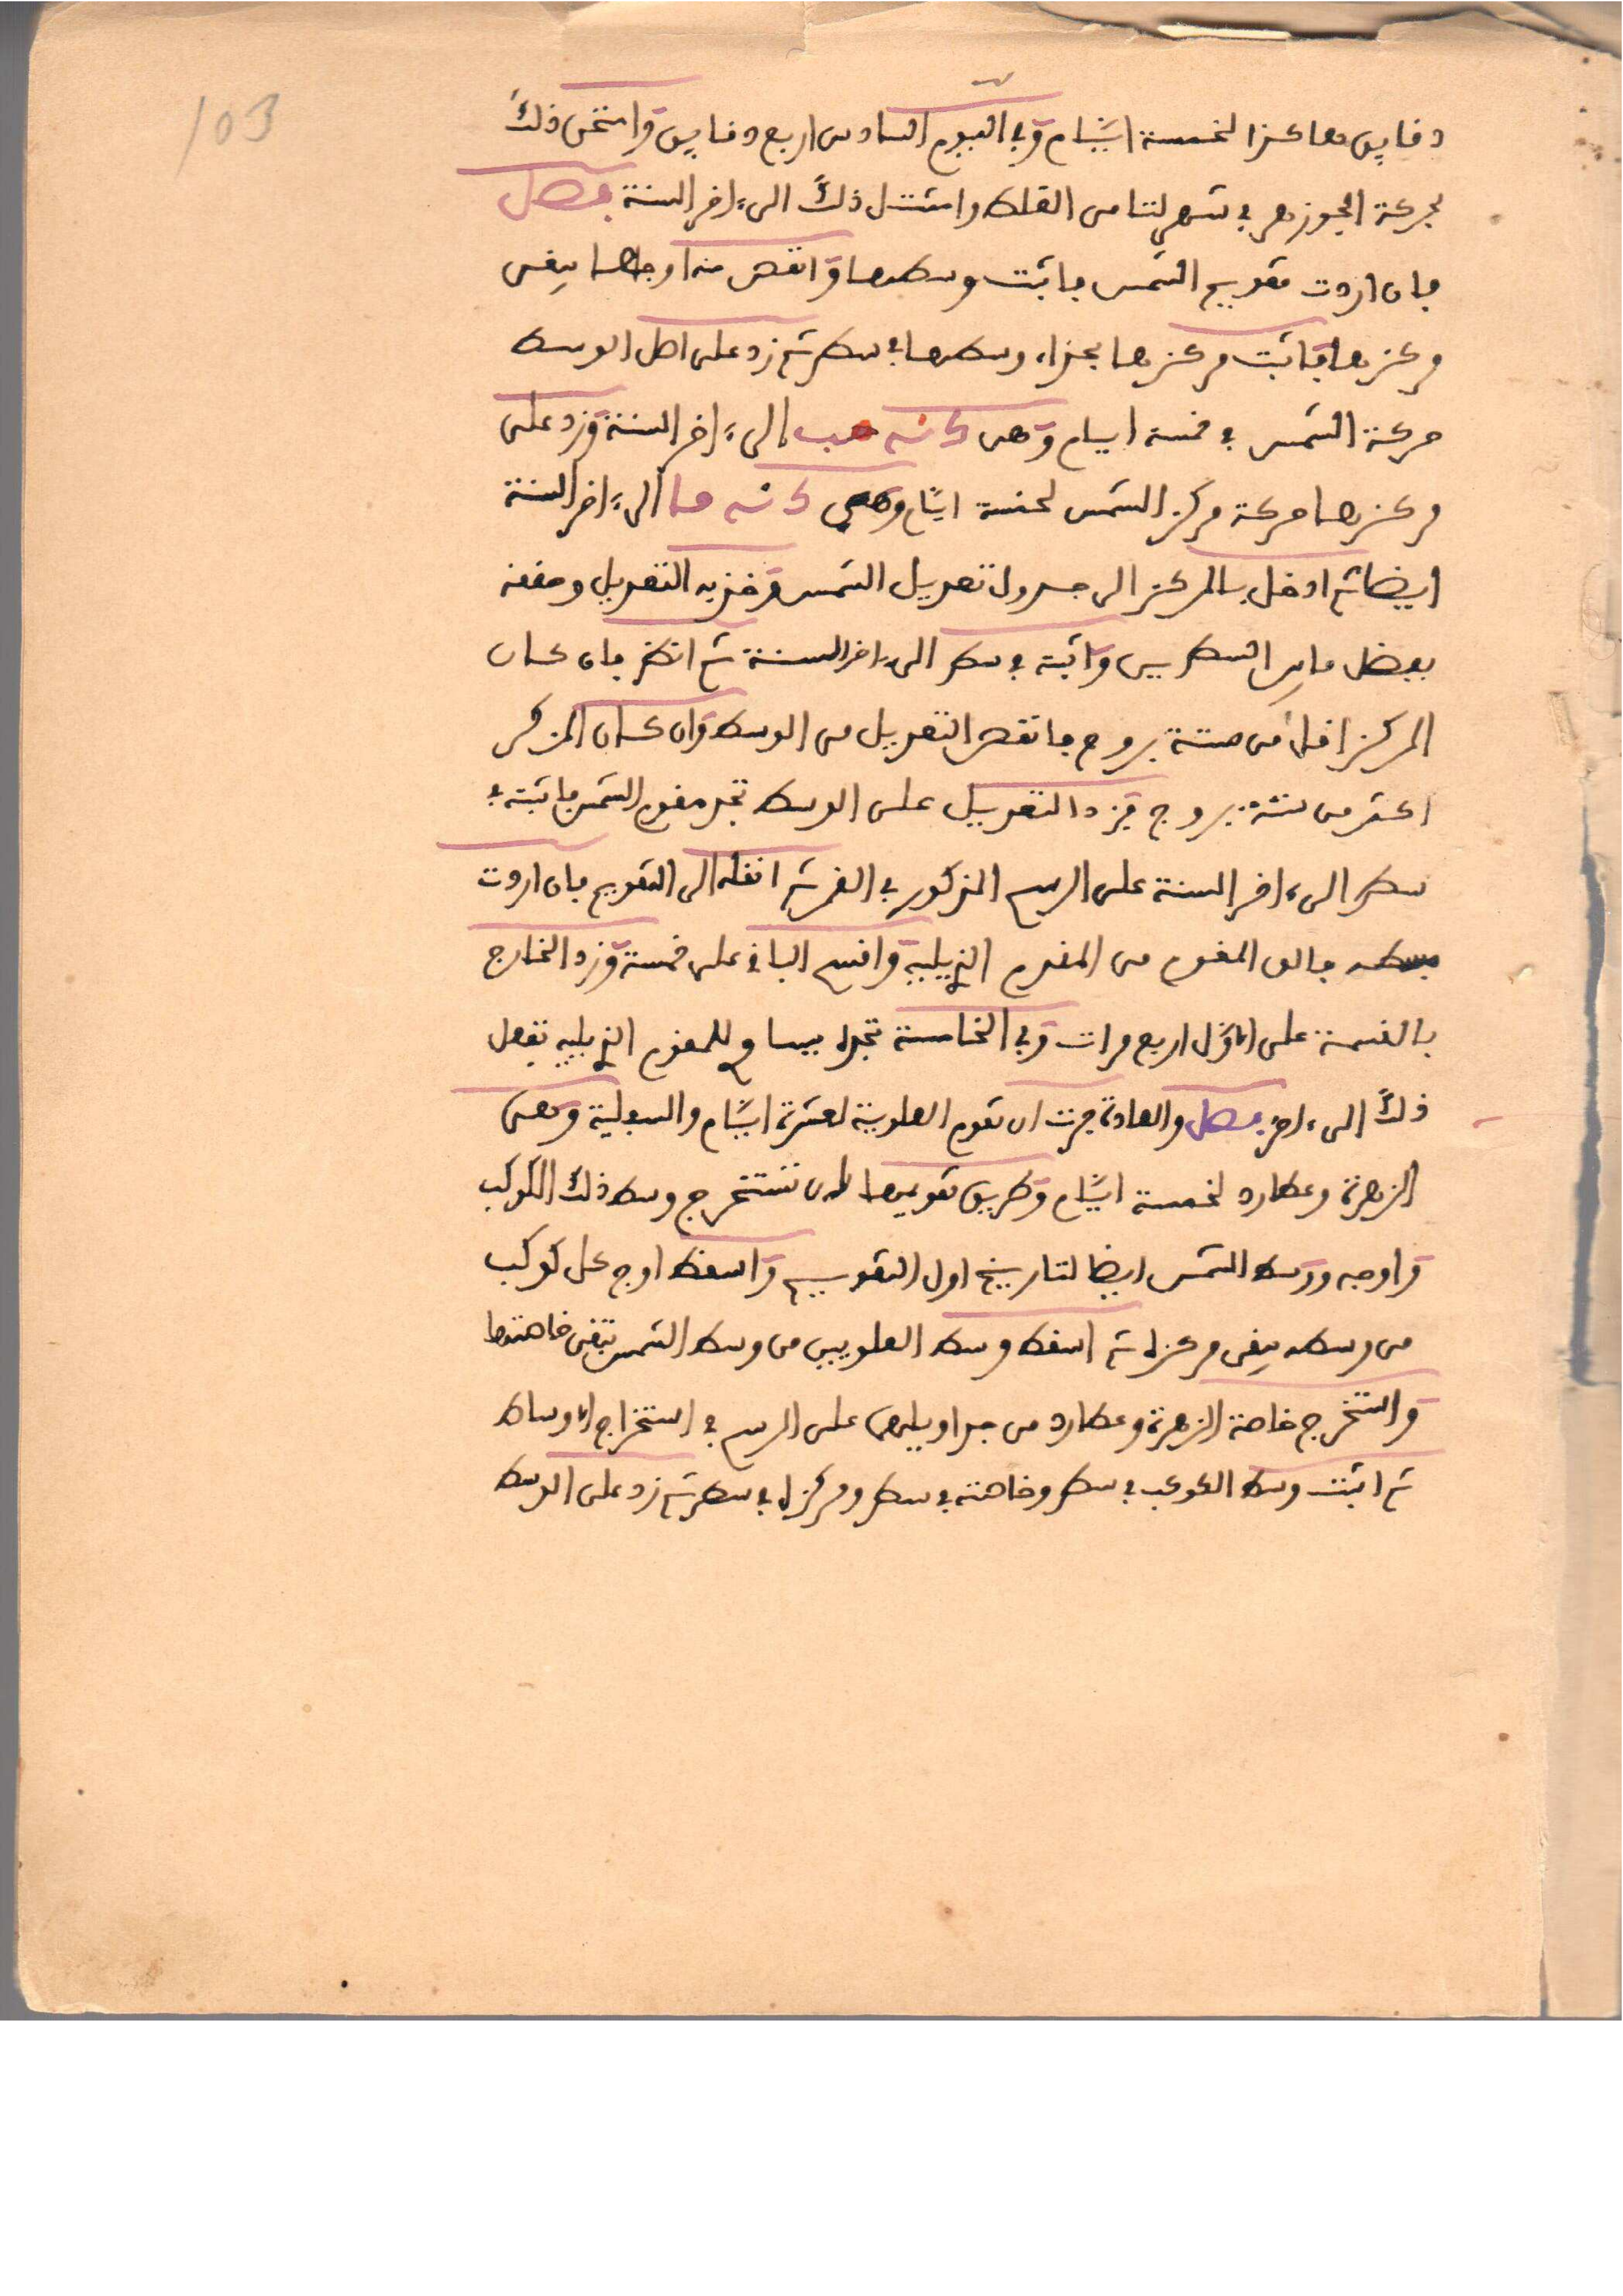 103
دقايق هاكذا لخمسة ايّام وفي اليوم السادس اربع دقايق وامتحن ذلك
بحركة الجوزهر في شهر لتامن الغلط وامتثل ذلك الى ءاخر السنة فصل
فان اردت تقويم الشمس فاثبت وسطها وانقص منه اوجها يبقى
مركزها فاثبت مركزها بجزاء وسطها في سطر ثم زد على اصل الوسط
حركة الشمس في خمسة ايام وهي الى ءاخر السنة وزد على
مركزها حركة مركز الشمس لخمسة ايّام وهي الى ءاخر السنة
ايضا ثم ادخل بالمركز الى جدول تعديل الشمس وخذ به التعديل وحققه
بفضل ما بين السطرين واثبته في سطر الى ءاخر السنة ثم انظر فان كان
المركز اقل من ستة بروج فانقص التعديل من الوسط وان كان المركز
اكثر من ستة بروج فزد التعديل على الوسط تجد مقوم الشمس فاثبته في
سطر الى ءاخر السنة على الرسم المذكور في القمر ثم انقله الى التقويم فان اردت
بسطه فالق المقوم من المقوم الذي يليه واقسم الباقي على خمسة وزد الخارج
بالقسمة على الاوّل اربع مرات وفي الخامسة تجده يساو للمقوم الذي يليه تفعل
ذلك الى ءاخره فصل والعادة جرت ان تقوم العلوية لعشرة ايّام والسفلية وهي
الزهرة وعطارد لخمسة ايّام وطريق تقويمها ان تستخرج وسط ذلك الكوكب
واوجه ووسط الشمس ايضا لتاريخ اول التقويم واسقط اوج كل كوكب
من وسطه يبقى مركزه ثم اسقط وسط العلويين من وسط الشمس تبقى خاصتها
واستخرج خاصة الزهرة وعطارد من جداويلهما على الرسم في استخراج الاوساط
ثم اثبت وسط الكوكب في سطر وخاصته في سطر ومركزه في سطر ثم زد على الوسط